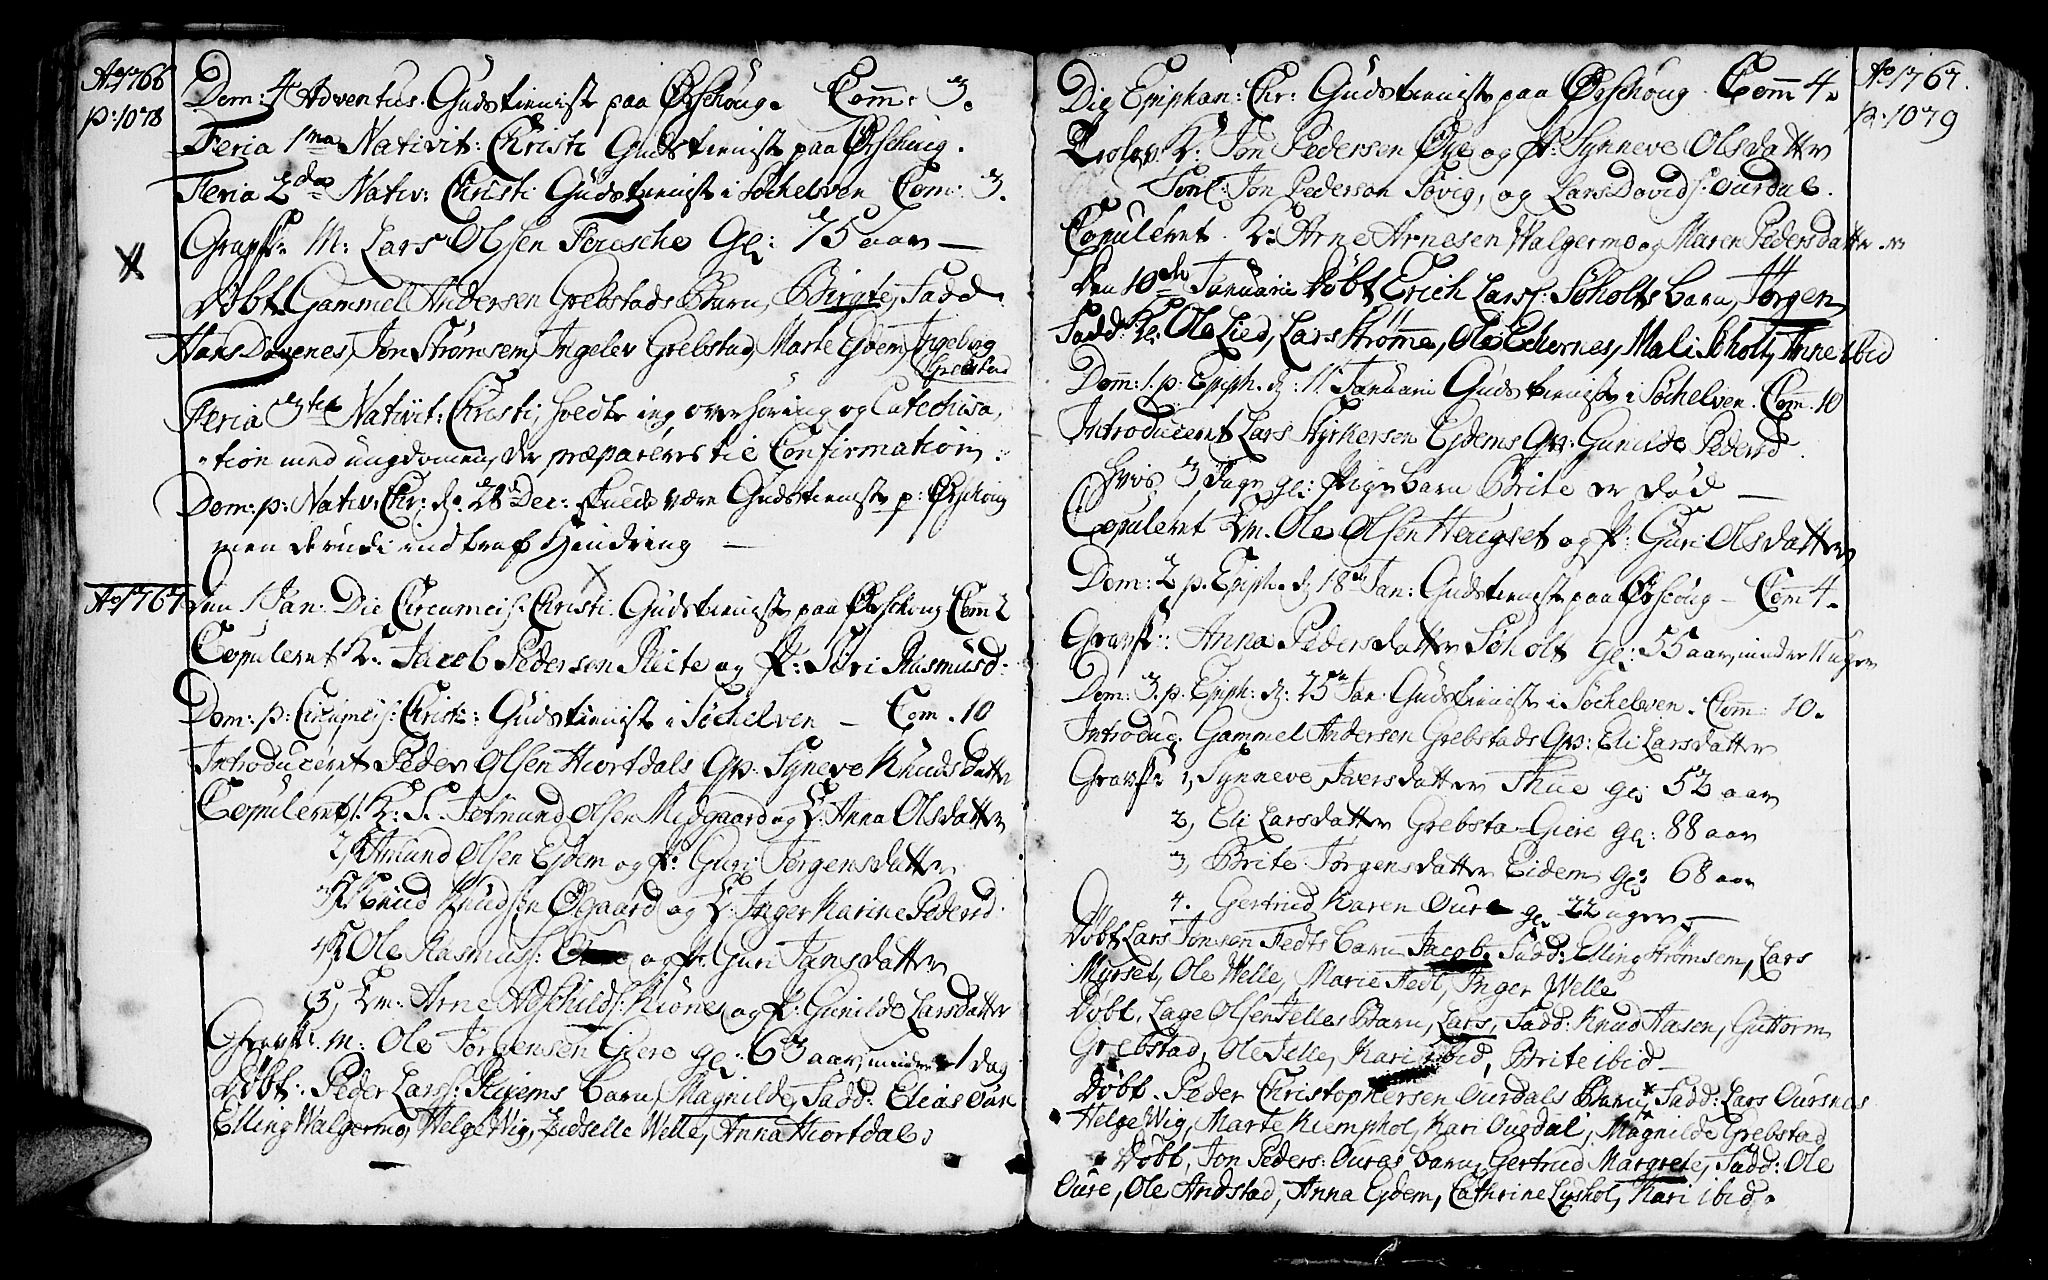 Ao 1766
p: 1078
Dom: 4 Adventus. Gudstienist paa Ørschoug. Com: 3.
Feria 1ma Nativit: Christi Gudstienist paa Ørschoug.
Feria 2da Nativ: Christi Gudstienist i Søchelven Com: 3.
Grafk: M: Lars Olsen Ferische Gl: 75 aar —
Døbt. Gammel Andersen Grebstads Barn, Birgte, Fadd:
Hans Døvenes, Jon Strømsem, Ingelev Grebstad, Marte Ejdem, Ingeborg
Grebstad
Feria 3tia Nativit: Christi, holdte ieg overhøring og Catechisa,
tion med ungdomen, der præpareres til Confirmation.
Dom: p: Nativ: Chr: d. 28 Dec: skulde være Gudstienist p: Ørschoug
men derudi indtraf Hindring —
Ao 1767 den 1 Jan: Die Circumcis: Christi. Gudstienist paa Ørschoug Com 2
Copuleret K: Jacob Pedersen Flote og P: Siri Rasmusd:
Dom: p: Circumcis: Christi: Gudstienist i Søchelven — Com. 10
Introduceret Peder Olsen Hiortdals Qv: Syneve Knudsdatter
Copuleret 1. K: S. Jetmund Olsen Midgaard og E: Anna Olsdatter
2, K Amund Olsen Ejdem og P: Guri Jørgensdatter
3, K Knud Knudsen Øgaard og E: Inger Karine Pedersd:
4, K Ole Rasmuss: og P: Guri Jansdatter
5, Em: Arne Adschilds: Kiønes og P: Gunilde Larsdatter
Grafk: M: Ole Jørgensen Giere gl: 63 aar, mindre 1 dag
Døbt: Peder Larss: Barn Magnilde, Fadd: Elias Oure
Elling Walgermo, Helge Wig, Zidselle Welle, Anna Hiortdal:
Ao 1767.
p: 1079
Die Epiphan: Chr: Gudstienist paa Ørschoug. Com 4.
Trolov: K: Jon Pedersen Øye og P: Synneve Olsdatter
Forl: Jon Pedersen Søvig, og Lars Davids: Ourdal.
Copuleret. K: Arne Arnesen Walgermo og Maren Pedersdatter
Den 10de Januarii Døbt Erich Larss: Søholts barn, Jørgen
Fadd: K: Ole Lied, Lars Strømme, Ole Echornes, Mali Søholt, Anne ibid
Dom: 1. p: Epiph. d: 11 Januarii Gudstienist i Søchelven. Com. 10
Introduceret Lars Styrkersen Ejdems Qv: Gunilde Pedersd.
hvis 3 Dage gl: Pigebarn Brite er død —
Copuleret Em. Ole Olsen Haugset og P: Guri Olsdatter
Dom: 2 p. Epiph. d: 18de Jan: Gudstienist paa Ørschoug — Com 4.
Grafk: Anna Pedersdatter Søholt gl: 55 aar, mindre 11 uger
Dom: 3. p. Epiph: d: 25de Jan. Gudstienist i Søchelven. Com: 10.
Introduc: Gammel Andersen Grebstads Qv: Eli Larsdatter
Grafk: 1, Synneve Iversdatter Thue gl: 52 aar
2, Eli Larsdatter Grebsta-Giere gl: 88 aar
3, Brite Jørgensdatter Eidem gl: 68 aar
4. Gertrud Karen Oure gl: 22 uger. —
Døbt Lars Jonsen Fedts barn Jacob. Fadd: Elling Strømsem, Lars
Myrset, Ole Welle, Marie Fedt, Inger Welle
Døbt, Lage Olsen Jelles Barn, Lars, Fadd: Knud Aasen, Guttorm
Grebstad, Ole Jelle, Kari ibid, Brite ibid —
Døbt. Peder Christophersen Ourdals Barn, Fadd: Lars Oursnes
Helge Wig, Marte Kiemphol, Kari Ourdal, Magnilde Grebstad
Døbt, Jon Peders: Oures barn, Gertrud Margrete, Fadd: Ole
Oure, Ole Andstad, Anna Ejdem, Cathrine Lyshol, Kari ibid.